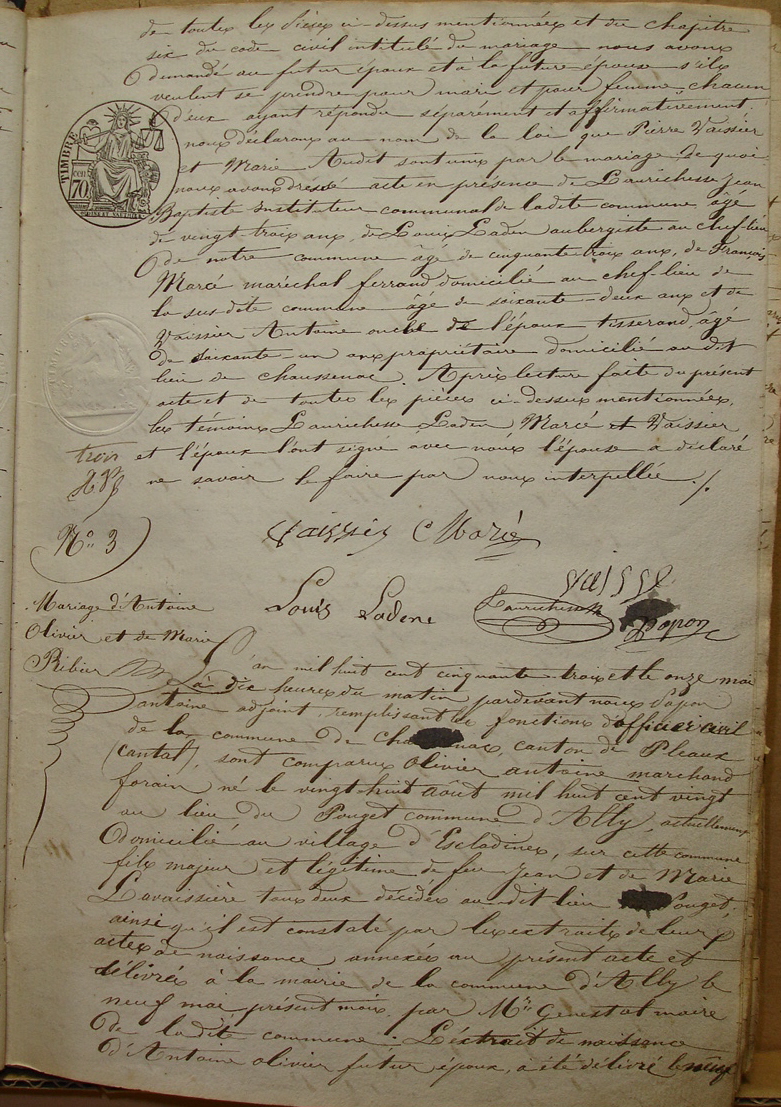 de toutes les pièces ci-dessus mentionnées et du chapitre
six du code civil intitulé du mariage nous avons
demandé au futur époux et à la future épouse s'ils
veulent se prendre pour mari et pour femme, chacun
d'eux ayant répondu séparément et affirmativement
nous déclarons au nom de la loi que Pierre Vaissier
et Marie Audit sont unis par le mariage. De quoi
nous avons dressé acte en présence de Laurichesse Jean
Baptiste instituteur communal de ladite commune, âgé
de vingt-trois ans, de Louis Laden aubergiste au chef-lieu
de notre commune âgé de cinquante trois ans, de François
Marcé maréchal ferrand domicilié au chef-lieu de
la susdite commune âgé de soixante-deux ans et de
Vaissier Antoine oncle de l'époux tisserand, âgé
de soixante-un ans propriétaire domicilié au dit
lieu de chaussenac. Après lecture faite du présent
acte et de toutes les pièces ci-dessus mentionnées,
les témoins Laurichesse Laden Marcé et Vaissier
et l'époux l'ont signé avec nous l'épouse a déclaré
ne savoir le faire par nous interpellée ./.
TIMBRE
70
trois
N° 3
Vaissier Marcé
Louis Ladene
Laurichesse
Papon
Mariage d'Antoine
Olivier et de Marie
Ribier
L'an mil huit cent cinquante-trois et le onze mai
à dix heures du matin pardevant nous Papon
antoine adjoint, remplissant les fonctions d'officier civil
de la commune de Cha nac, canton de Pleaux
(cantal), sont comparus Olivier antoine marchand
forain né le vingt huit août mil huit cent vingt
au lieu du Pouget commune d'Ally, actuellement
domicilié au village d'Escladines, sur cette commune
fils majeur et légitime de feu Jean et de Marie
Lavaissière tous deux décédés au dit lieu Pouget,
ainsi qu'il est constaté par les extraits de leurs
actes de naissance annexés au présent acte et
délivrés à la mairie de la commune d'Ally le
neuf mai présent mois, par Mr Genestal maire
de ladite commune. L'extrait de naissance
d'Antoine olivier futur époux, a été délivré le neuf